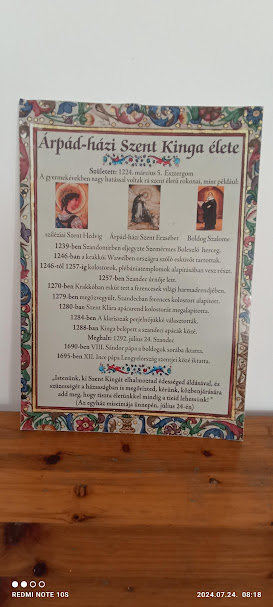 Árpád-házi Szent Kinga élete
Született: 1224. március 5. Esztergom
A gyermekévekben nagy hatással voltak rá szent életű rokonai, mint például:
sziléziai Szent Hedvig Árpád-házi Szent Erzsébet Boldog Szalóme
1239-ben Szandomirban eljegyzte Szemérmes Boleszló herceg.
1246-ban a krakkói Wawelben országra szóló esküvőt tartottak.
1246-tól 1257-ig kolostorok, plébániatemplomok alapításában vesz részt.
1257-ben Szandec úrnője lett.
1270-ben Krakkóban esküt tett a ferencesek világi harmadrendjében.
1279-ben megözvegyült, Szandecban ferences kolostort alapított.
1280-ban Szent Klára apácarend kolostorát megalapította.
1284-ben A klarisszák perjelnőjükké választották.
1288-ban Kinga belépett a szandeci apácák közé.
Meghalt: 1292. július 24. Szandec
1690-ben VIII. Sándor pápa a boldogok sorába iktatta.
1695-ben XII. Ince pápa Lengyelország szentjei közé iktatta.
„Istenünk, ki Szent Kingát elhalmoztad édességed áldásával, és
szüzességét a házasságban is megőrizted, kérünk, közbenjárására
add meg, hogy tiszta életünkkel mindig a tieid lehessünk!"
(Az egyház miseimája ünnepén, július 24-én)
REDMI NOTE 10S
2024.07.24. 08:18